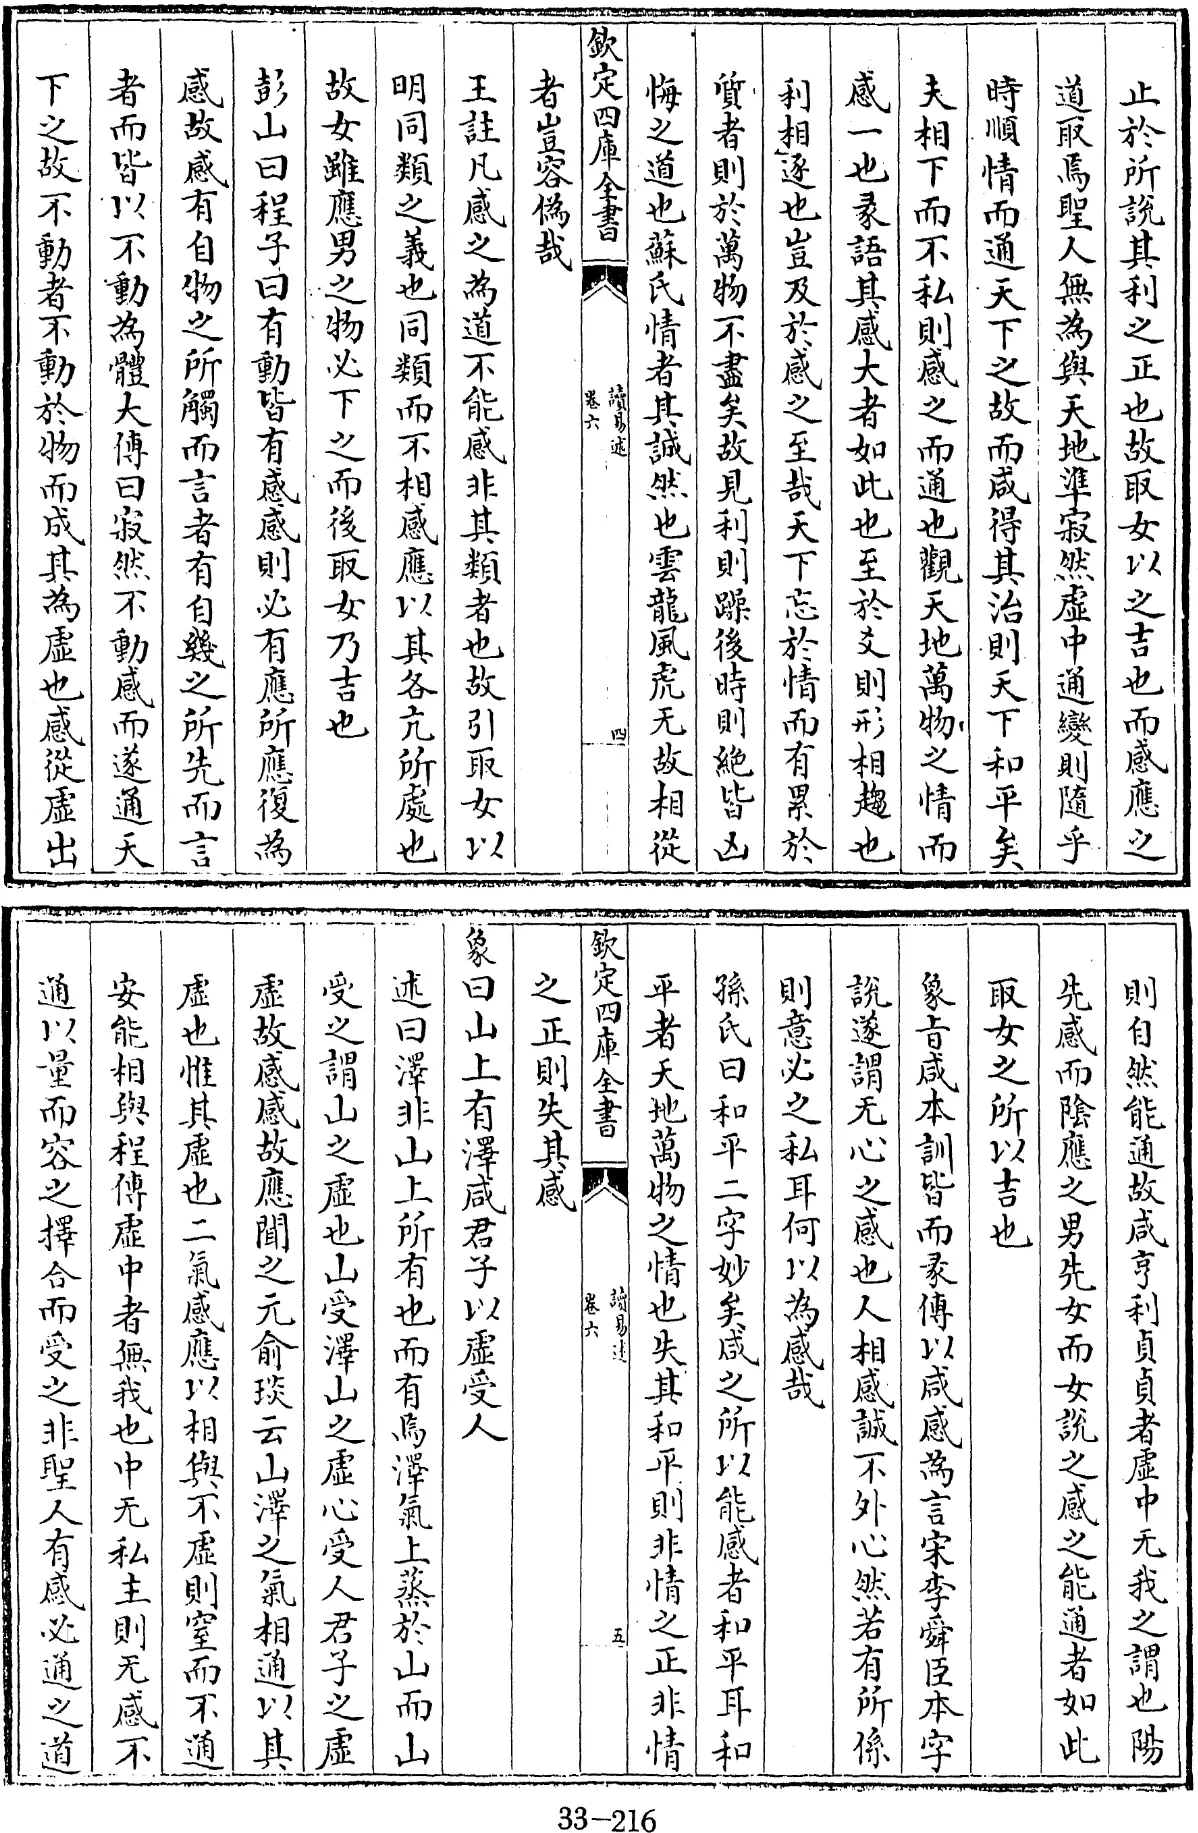 止於所説其利之正也故取女以之吉也而感應之
道取焉聖人無為與天地準寂然虛中通變則隨乎
時順情而通天下之故而咸得其治則天下和平矣
夫相下而不私則感之而通也觀天地萬物之情而
感一也彖語其感大者如此也至於爻則形相趨也
利相逐也豈及於感之至哉天下忘於情而有累於
質者則於萬物不盡矣故見利則躁後時則絶皆凶
悔之道也蘇氏情者其誠然也雲龍風虎无故相從
欽定四庫全書
讀易述
卷六
四
者豈容僞哉
王註凡感之為道不能感非其類者也故引取女以
明同類之義也同類而不相感應以其各亢所處也
故女雖應男之物必下之而後取女乃吉也
彭山曰程子曰有動皆有感感則必有應所應復為
感故感有自物之所觸而言者有自幾之所先而言
者而皆以不動為體大傳曰寂然不動感而遂通天
下之故不動者不動於物而成其為虛也感從虛出
則自然能通故咸亨利貞貞者虛中无我之謂也陽
先感而陰應之男先女而女説之感之能通者如此
取女之所以吉也
象旨咸本訓皆而彖傳以咸感為言宋李舜臣本字
説遂謂无心之感也人相感誠不外心然若有所係
則意必之私耳何以為感哉
孫氏曰和平二字妙矣咸之所以能感者和平耳和
平者天地萬物之情也失其和平則非情之正非情
欽定四庫全書
讀易述
卷六
五
之正則失其感
象曰山上有澤咸君子以虛受人
述曰澤非山上所有也而有焉澤氣上蒸於山而山
受之謂山之虛也山受澤山之虛心受人君子之虛
虛故感感故應聞之元俞琰云山澤之氣相通以其
虛也惟其虛也二氣感應以相與不虛則窒而不通
安能相與程傳虛中者無我也中无私主則无感不
通以量而容之擇合而受之非聖人有感必通之道
33-216